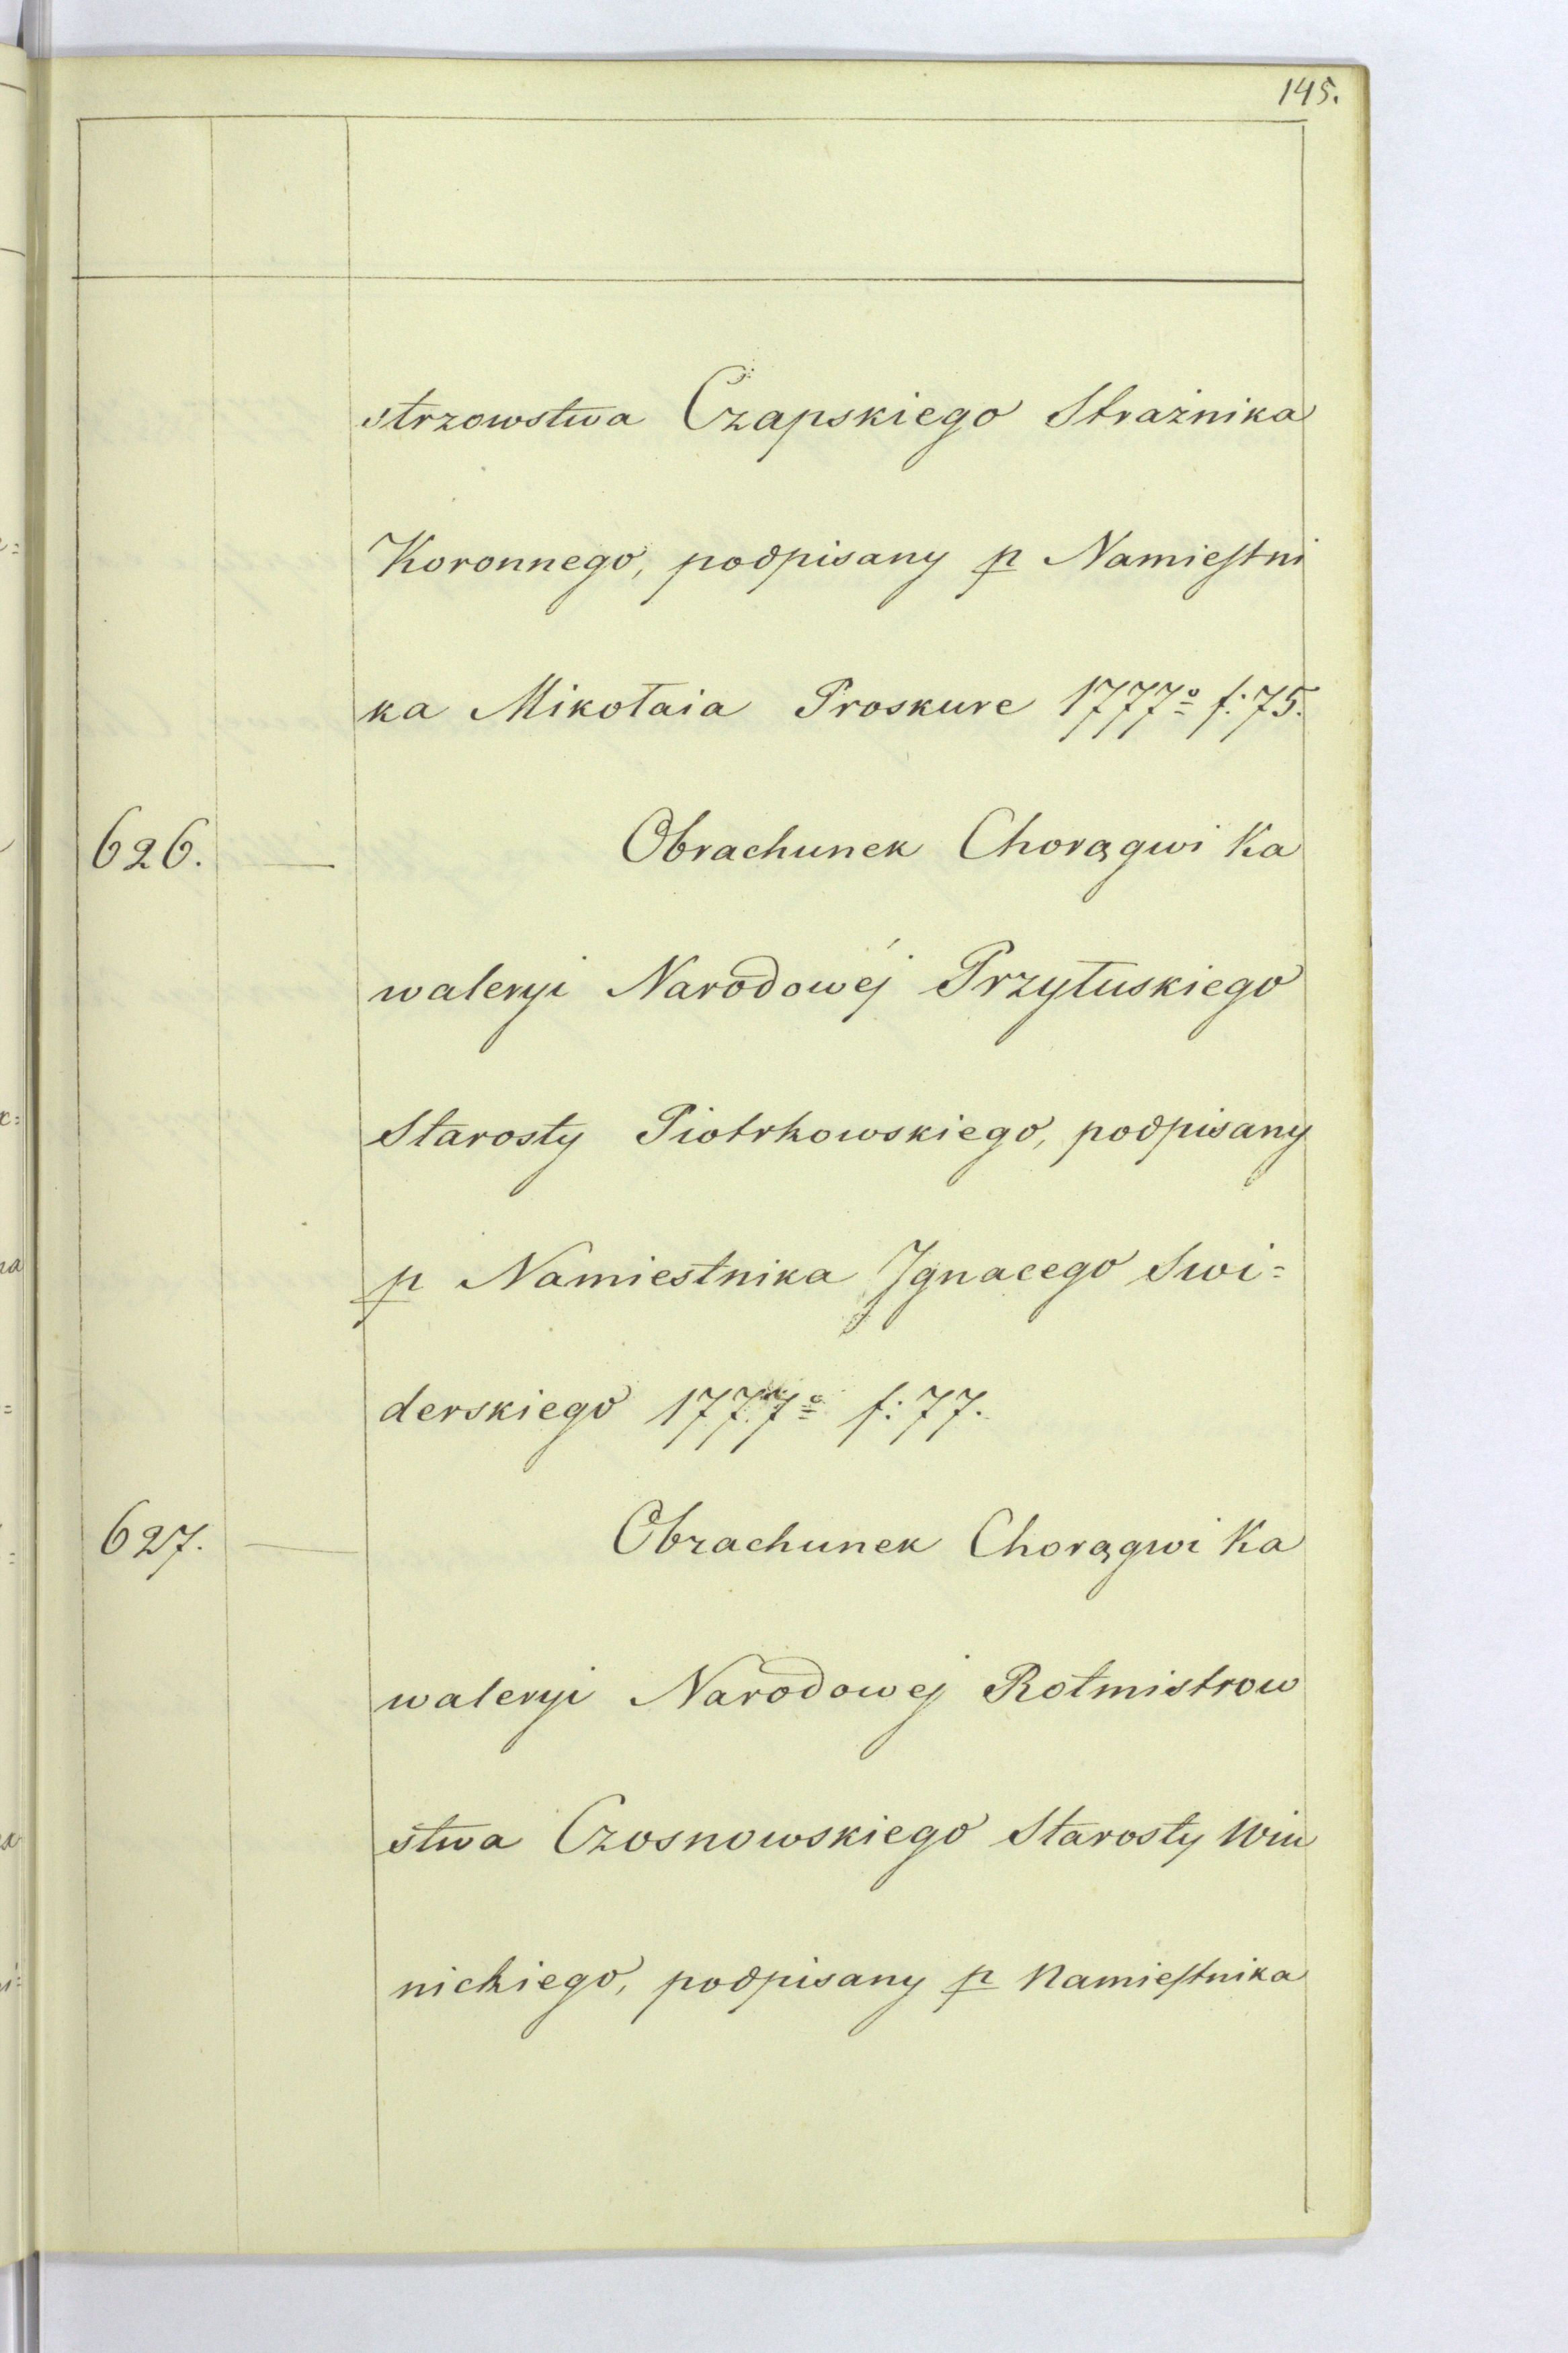 145.
strzowstwa Czapskiego Strażnika
Koronnego, podpisany p Namiestni
ka Mikołaia Proskure 1777º f: 75.
626. — Obrachunek Chorągwi Ka
waleryi Narodowéj Przyłuskiego
Starosty Piotrkowskiego, podpisany
p Namiestnika Ignacego Swi=
derskiego 1777º f: 77.
627. — Obrachunek Chorągwi Ka
waleryi Narodowej Rotmistrow
stwa Czosnowskiego Starosty Win
nickiego, podpisany p Namiestnika